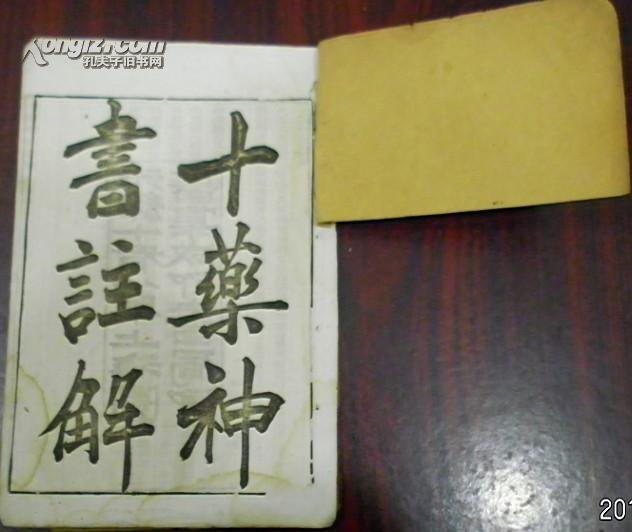 Kongfz.com
孔夫子旧书网
十藥神
書註解
201